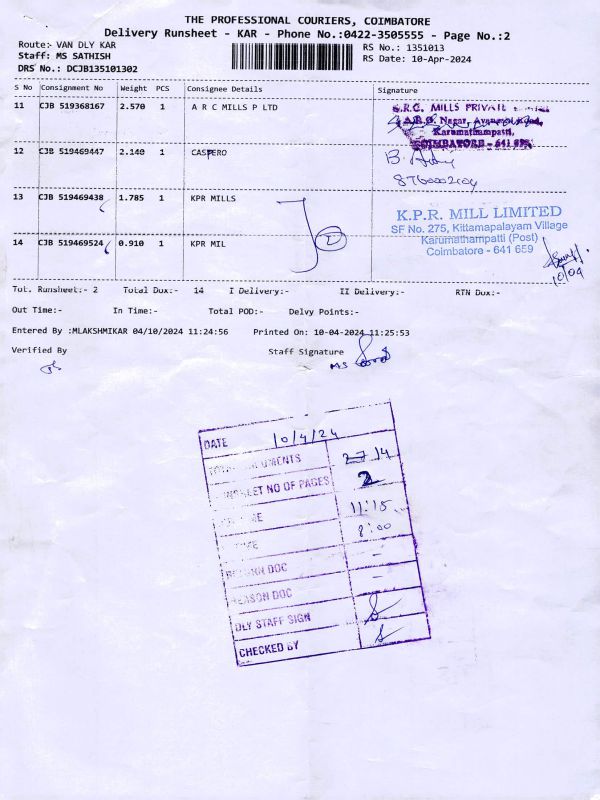 THE PROFESSIONAL COURIERS, COIMBATORE
Delivery Runsheet - KAR - Phone No.:0422-3505555 - Page No.:2
Route:- VAN DLY KAR
Staff: MS SATHISH
DRS No.: DCJB135101302
RS No.: 1351013
RS Date: 10-Apr-2024
S No Consignment No Weight PCS Consignee Details Signature
11 CJB 519368167 2.570 1 A R C MILLS P LTD
MILLS PRIVATE
Nagar,
Karumathampatti,
COIMBATORE - 641 659
12 CJB 519469447 2.140 1 CASPERO
B.
13 CJB 519469438 1.785 1 KPR MILLS
2
K.P.R. MILL LIMITED
SF No. 275, Kittamapalayam Village
Karumathampatti (Post)
Coimbatore - 641 659
14 CJB 519469524 0.910 1 KPR MIL
10/04
Tot. Runsheet:- 2 Total Dox:- 14 I Delivery:- II Delivery:- RTN Dox:-
Out Time:- In Time:- Total POD:- Delvy Points:-
Entered By :MLAKSHMIKAR 04/10/2024 11:24:56 Printed On: 10-04-2024 11:25:53
Verified By Staff Signature
MS
DATE 10/4/24
14
NO OF PAGES 2
11:15
8:00
RETURN DOC -
REASON DOC -
DLY STAFF SIGN
CHECKED BY